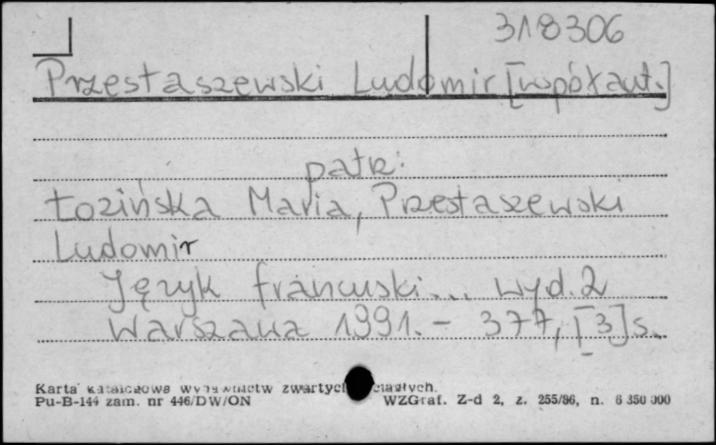 318306
Przestaszewski Ludomir [współaut.]
patrz:
Łozińska Maria, Przestaszewski
Ludomir
Język francuski... wyd. 2
Warszawa 1991. - 377, [3] s.
Karta katalogowa wydawnictw zwartych ciągłych.
Pu-B-144 zam. nr 446/DW/ON WZGraf. Z-d 2, z. 255/86, n. 6 350 000